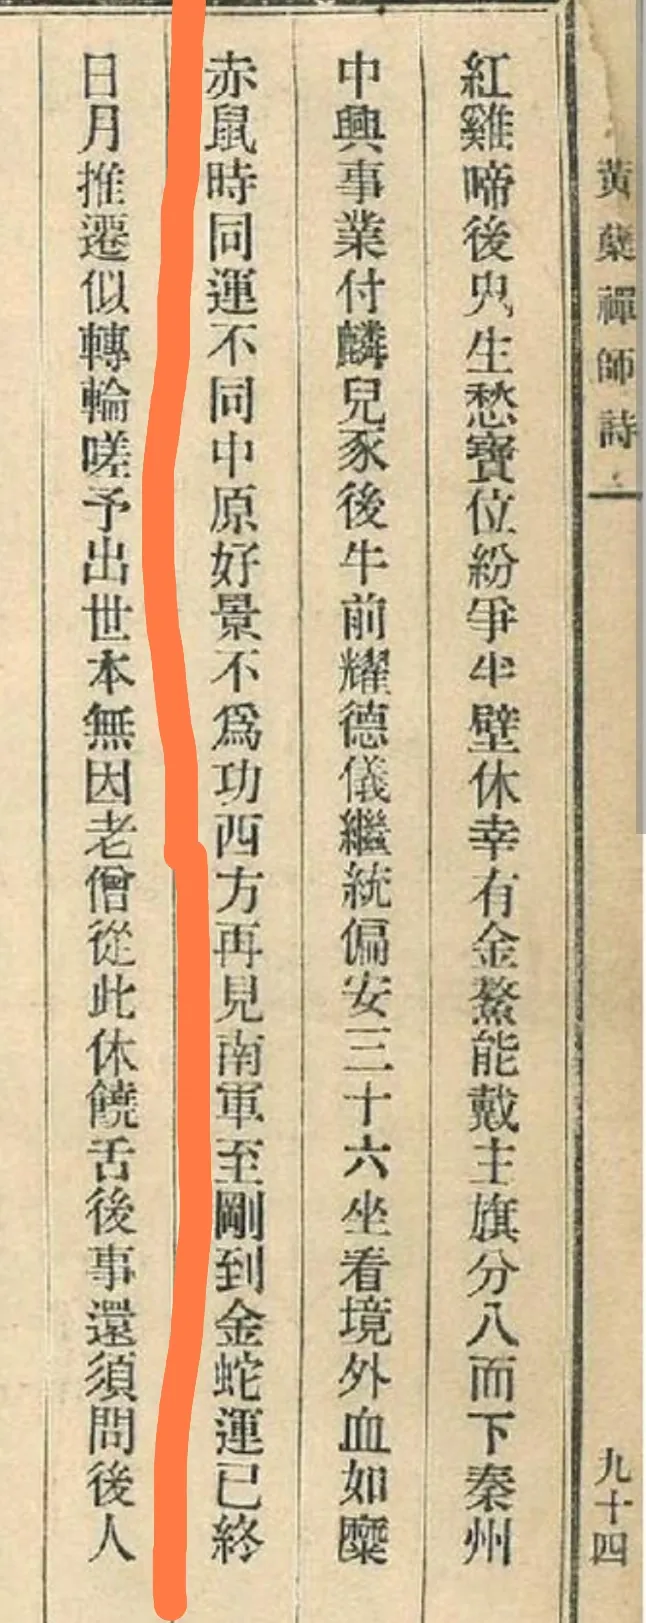 黃蘗禪師詩
九十四
紅雞啼後鬼生愁寶位紛爭半壁休幸有金鰲能戴主旗分八面下秦州
中興事業付麟兒豕後牛前耀德儀繼統偏安三十六坐看境外血如糜
赤鼠時同運不同中原好景不爲功西方再見南軍至剛到金蛇運已終
日月推遷似轉輪嗟予出世本無因老僧從此休饒舌後事還須問後人